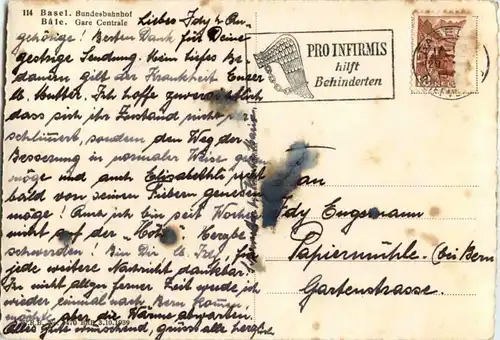 114 Basel. Bundesbahnhof
Bâle. Gare Centrale
Liebes Idy & An-
gehörige! Besten Dank für Deine
gestrige Sendung. Mein tiefes Be-
dauern gilt der Krankheit Eurer
lb. Mutter. Ich hoffe zuversichtlich
dass sich ihr Zustand nicht ver-
schlimmert, sondern den Weg der
Besserung in normaler Weise gehen
möge und auch Elisabethli recht
bald von seinem Fiebern genesen
möge! Auch ich bin seit Wochen
nicht auf der "Höhe" Herzbe-
schwerden! Bin Dir lb. Idy, für
jede weitere Nachricht dankbar!
In nicht allzu ferner Zeit werde ich
wieder einmal nach Bern kommen,
möchte aber die Wärme abwarten.
Alles gute wünschend, grüsst alle herzlich
3.10.1939
PRO INFIRMIS
hilft
Behinderten
Frau
Idy Engemann
Papiermühle (bei Bern
Gartenstrasse.